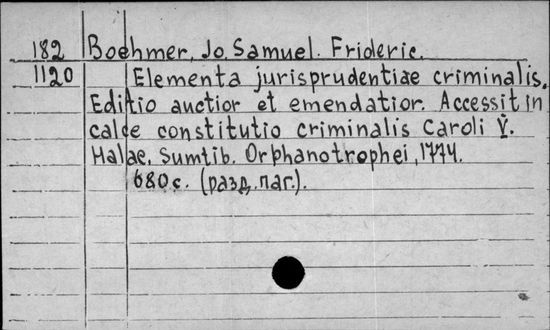 182 Boehmer, Jo. Samuel. Frideric.
1120 Elementa jurisprudentiae criminalis.
Editio auctior et emendatior. Accessit in
calce constitutio criminalis Caroli V.
Halae, Sumtib. Orphanotrophei, 1774.
680 с. (разд. паг.).